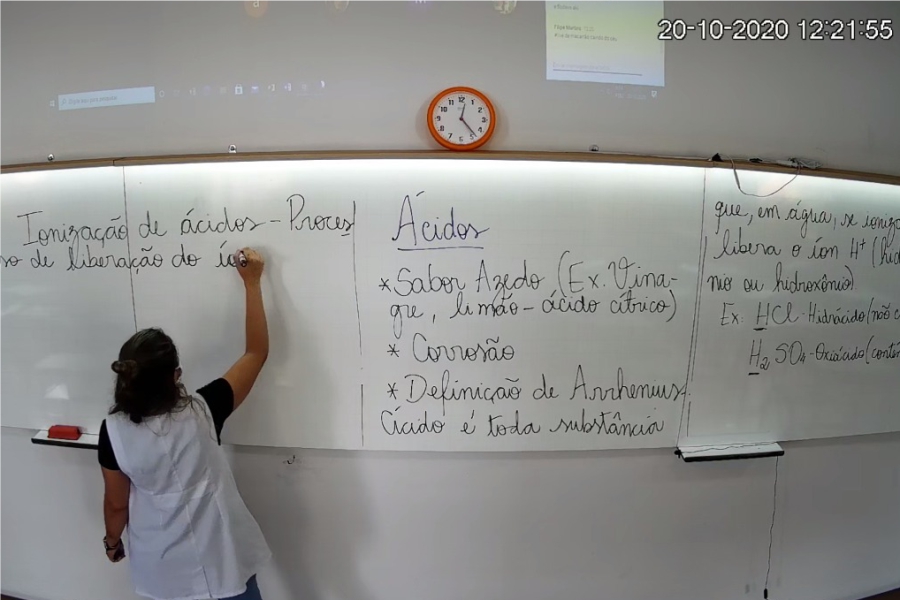 20-10-2020 12:21:55
Ionização de ácidos - Proces
so de liberação do
Ácidos
* Sabor Azedo (Ex. Vina-
gre, limão - ácido cítrico)
* Corrosão
* Definição de Arrhenius.
Ácido é toda substância
que, em água, se ioniza
libera o íon H+ (hid
nio ou hidroxônio)
Ex: HCl - Hidrácido (não c
H2SO4 - Oxiácido (conté